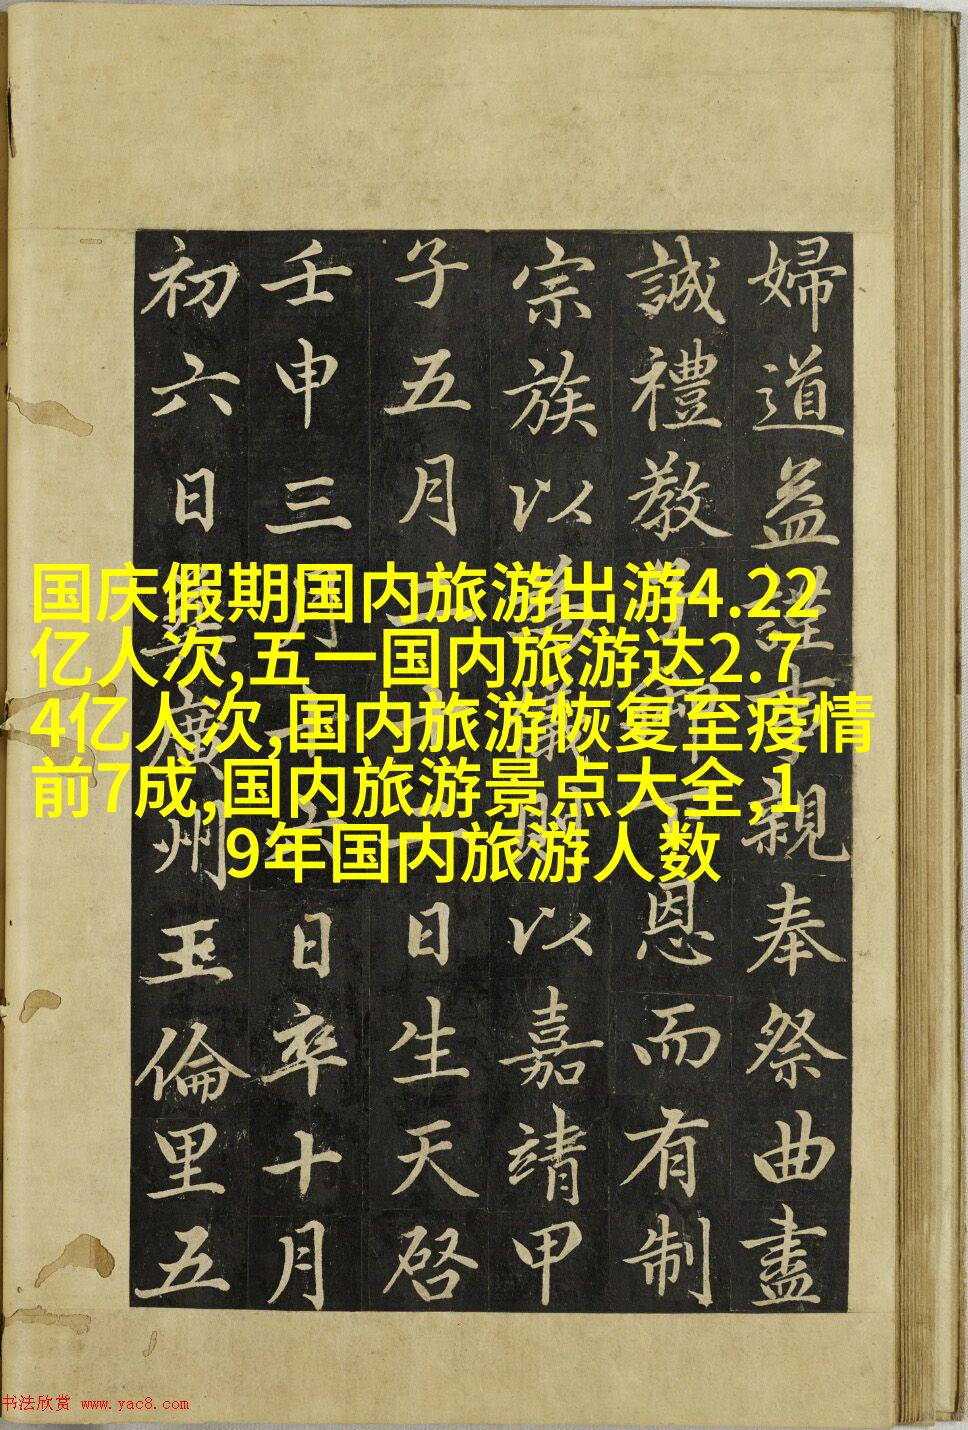 国庆假期国内旅游出游4.22
亿人次,五一国内旅游达2.7
4亿人次,国内旅游恢复至疫情
前7成,国内旅游景点大全,1
9年国内旅游人数
婦道益謹事親奉祭曲盡
誠禮教子御下恩而有制
宗族以為儀則以嘉靖甲
子五月十日生天啓
壬申三月十六日卒十月
初六日葬廣州玉倫里五
书法欣赏 www.yac8.com